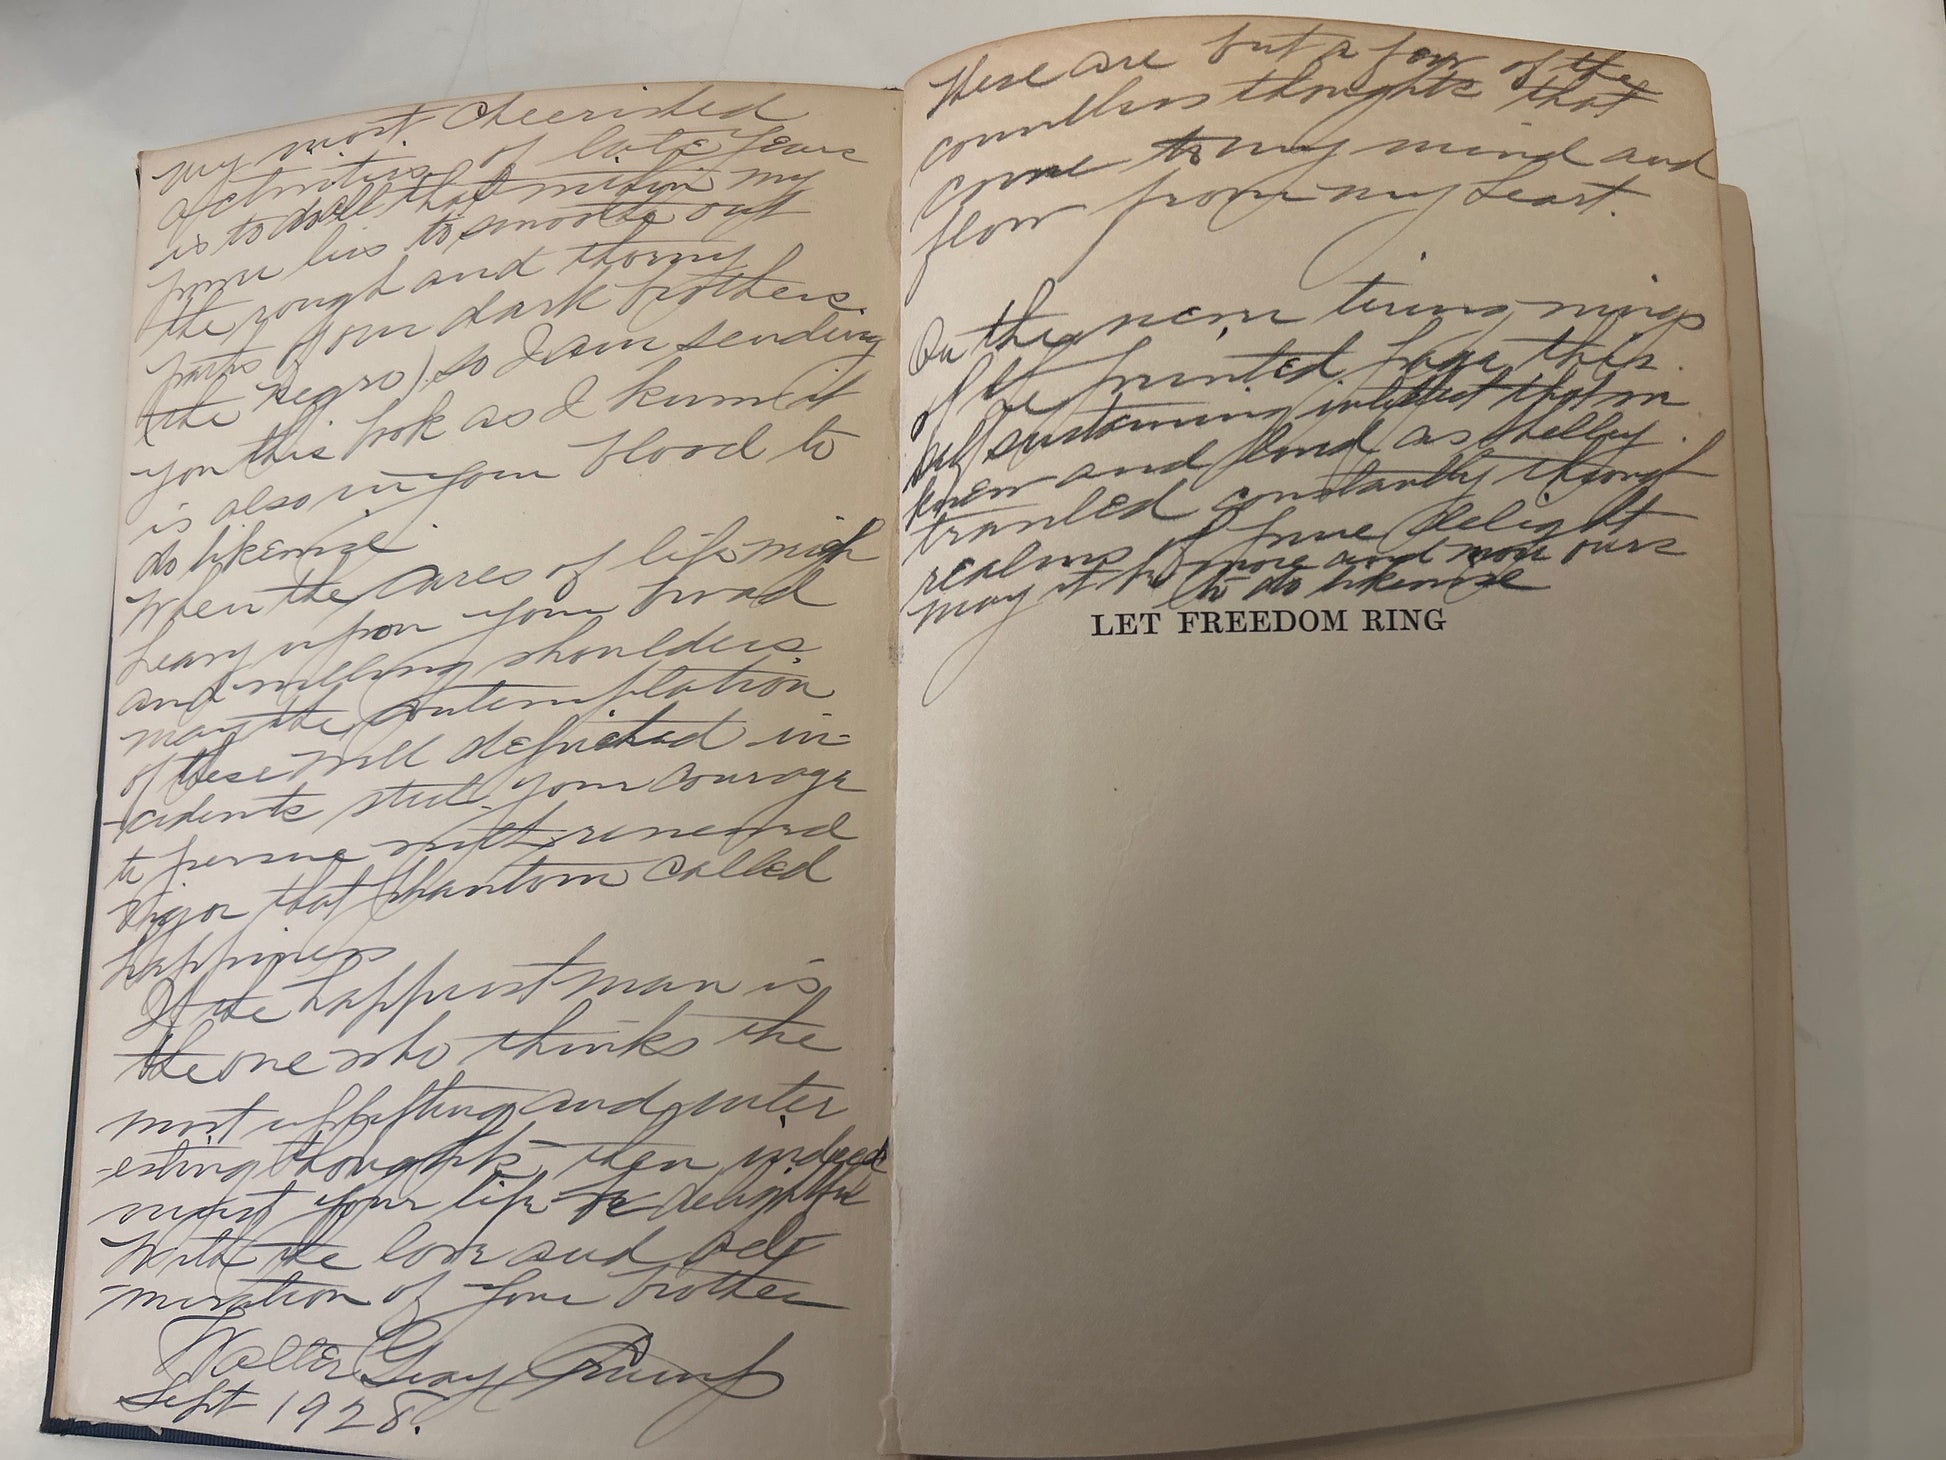 my most cheerished
activities of late years
is to do all that within my
power lies to smoothe out
the rough and thorny
paths of our dark brothers
(the Negro) so I am sending
you this book as I know it
is also in your blood to
do likewise
When the cares of life weigh
heavy upon your broad
and willing shoulders
may the contemplation
of these well depicted in-
-cidents steel your courage
to pursue with renewed
vigor that phantom called
happiness
If the happiest man is
the one who thinks the
most uplifting and inter
-esting thoughts then indeed
must your life be delightful
With the love and ad-
-miration of your brother
Walter Gray Crump
Sept 1928.
These are but a few of the
countless thoughts that
come to my mind and
flow from my heart.
On the new tiring wings
of the printed page this
self sustaining intellect that m
knew and loved as Shelley
traveled constantly through
realms of pure delight
may it be more and more ours
to do likewise
LET FREEDOM RING